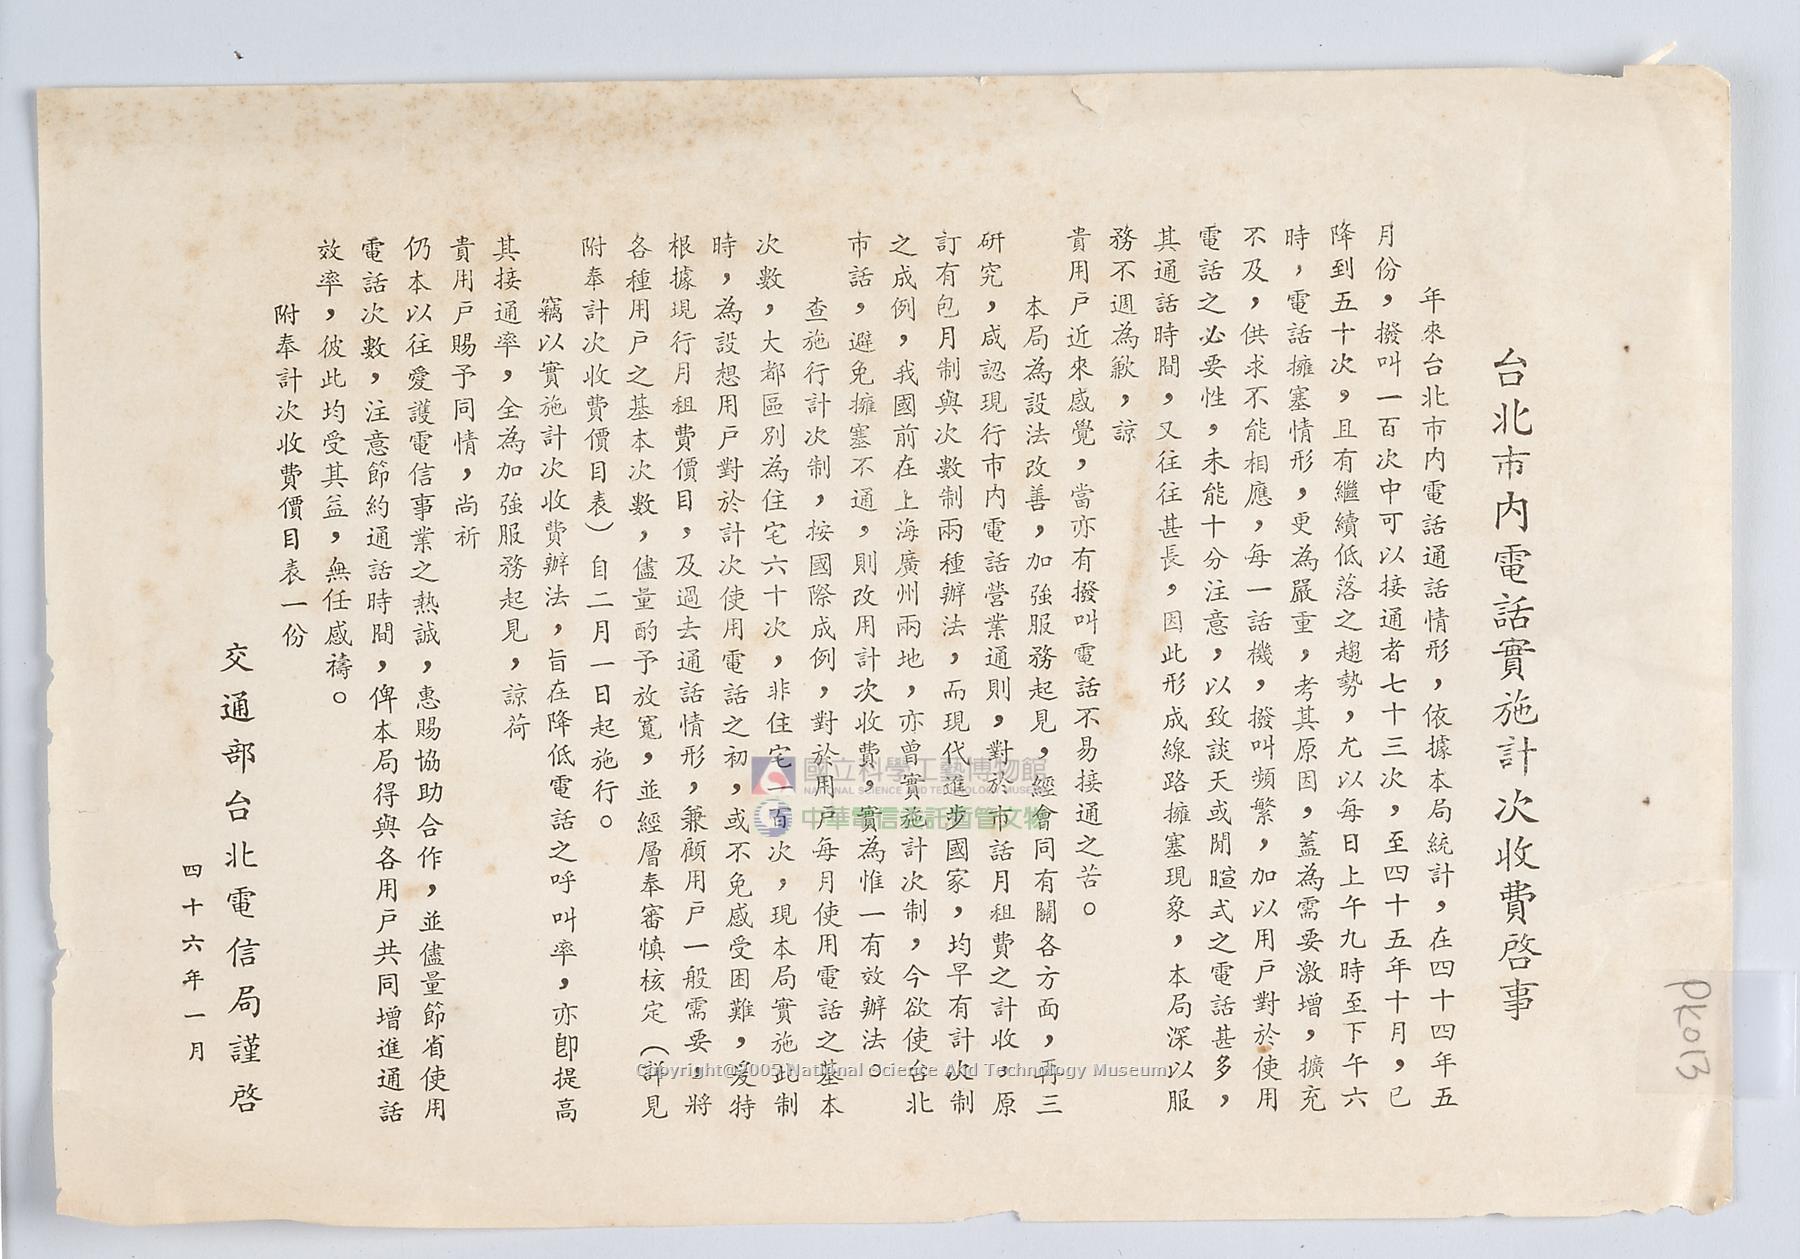 台北市內電話實施計次收費啓事
年來台北市內電話通話情形，依據本局統計，在四十四年五
月份，撥叫一百次中可以接通者七十三次，至四十五年十月，已
降到五十次，且有繼續低落之趨勢，尤以每日上午九時至下午六
時，電話擁塞情形，更為嚴重，考其原因，蓋為需要激增，擴充
不及，供求不能相應，每一話機，撥叫頻繁，加以用戶對於使用
電話之必要性，未能十分注意，以致談天或閒暄式之電話甚多，
其通話時間，又往往甚長，因此形成線路擁塞現象，本局深以服
務不週為歉，諒
貴用戶近來感覺，當亦有撥叫電話不易接通之苦。
本局為設法改善，加強服務起見，經會同有關各方面，再三
研究，咸認現行市內電話營業通則，對於市話月租費之計收，原
訂有包月制與次數制兩種辦法，而現代進步國家，均早有計次制
之成例，我國前在上海廣州兩地，亦曾實施計次制，今欲使台北
市話，避免擁塞不通，則改用計次收費，實為惟一有效辦法。
查施行計次制，按國際成例，對於用戶每月使用電話之基本
次數，大都區別為住宅六十次，非住宅一百次，現本局實施此制
時，為設想用戶對於計次使用電話之初，或不免感受困難，爰特
根據現行月租費價目，及過去通話情形，兼顧用戶一般需要，將
各種用戶之基本次數，儘量酌予放寬，並經層奉審慎核定（詳見
附奉計次收費價目表）自二月一日起施行。
竊以實施計次收費辦法，旨在降低電話之呼叫率，亦即提高
其接通率，全為加強服務起見，諒荷
貴用戶賜予同情，尚祈
仍本以往愛護電信事業之熱誠，惠賜協助合作，並儘量節省使用
電話次數，注意節約通話時間，俾本局得與各用戶共同增進通話
效率，彼此均受其益，無任感禱。
附奉計次收費價目表一份
交通部台北電信局謹啓
四十六年一月
國立科學工藝博物館
NATIONAL SCIENCE AND TECHNOLOGY MUSEUM
中華電信委託古管文物
Copyright@2005 National Science And Technology Museum
PK013